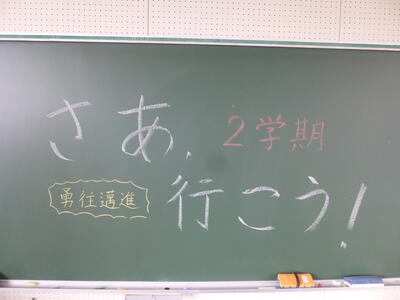 さあ、2学期
勇往邁進 行こう!